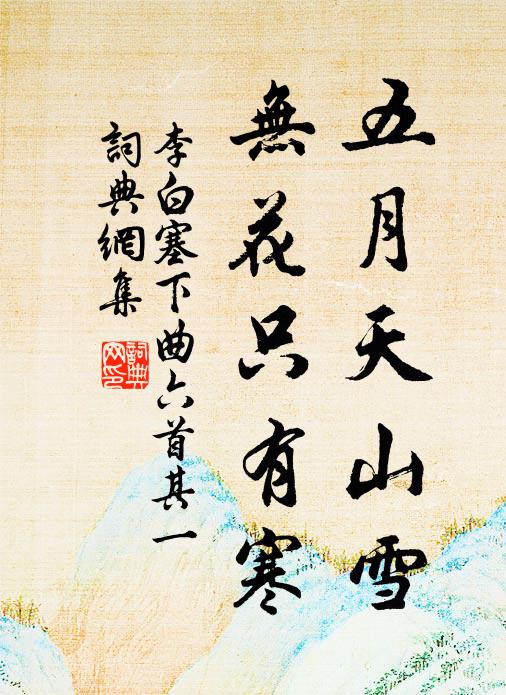 五月天山雪
無花只有寒
李白塞下曲六首其一
詞典網集
詞典
网印